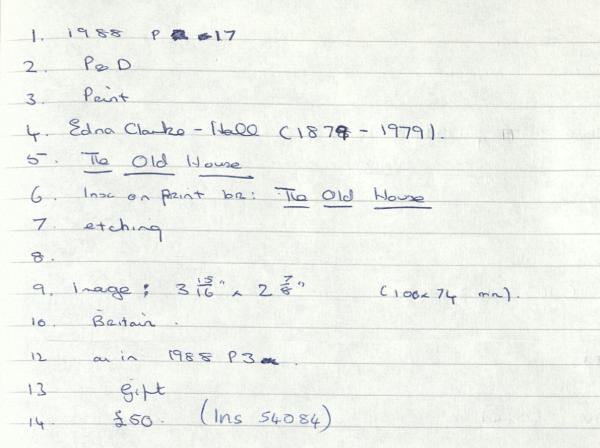 1. 1988 P 17
2. P&D
3. Print
4. Edna Clarke-Hall (1879 - 1979).
5. The Old House
6. Insc on print br: The Old House
7. etching
8.
9. Image: 3 15/16" x 2 7/8" (100x74 mm).
10. Britain.
12 as in 1988 P3.
13 gift
14. £50. (Ins 54084)